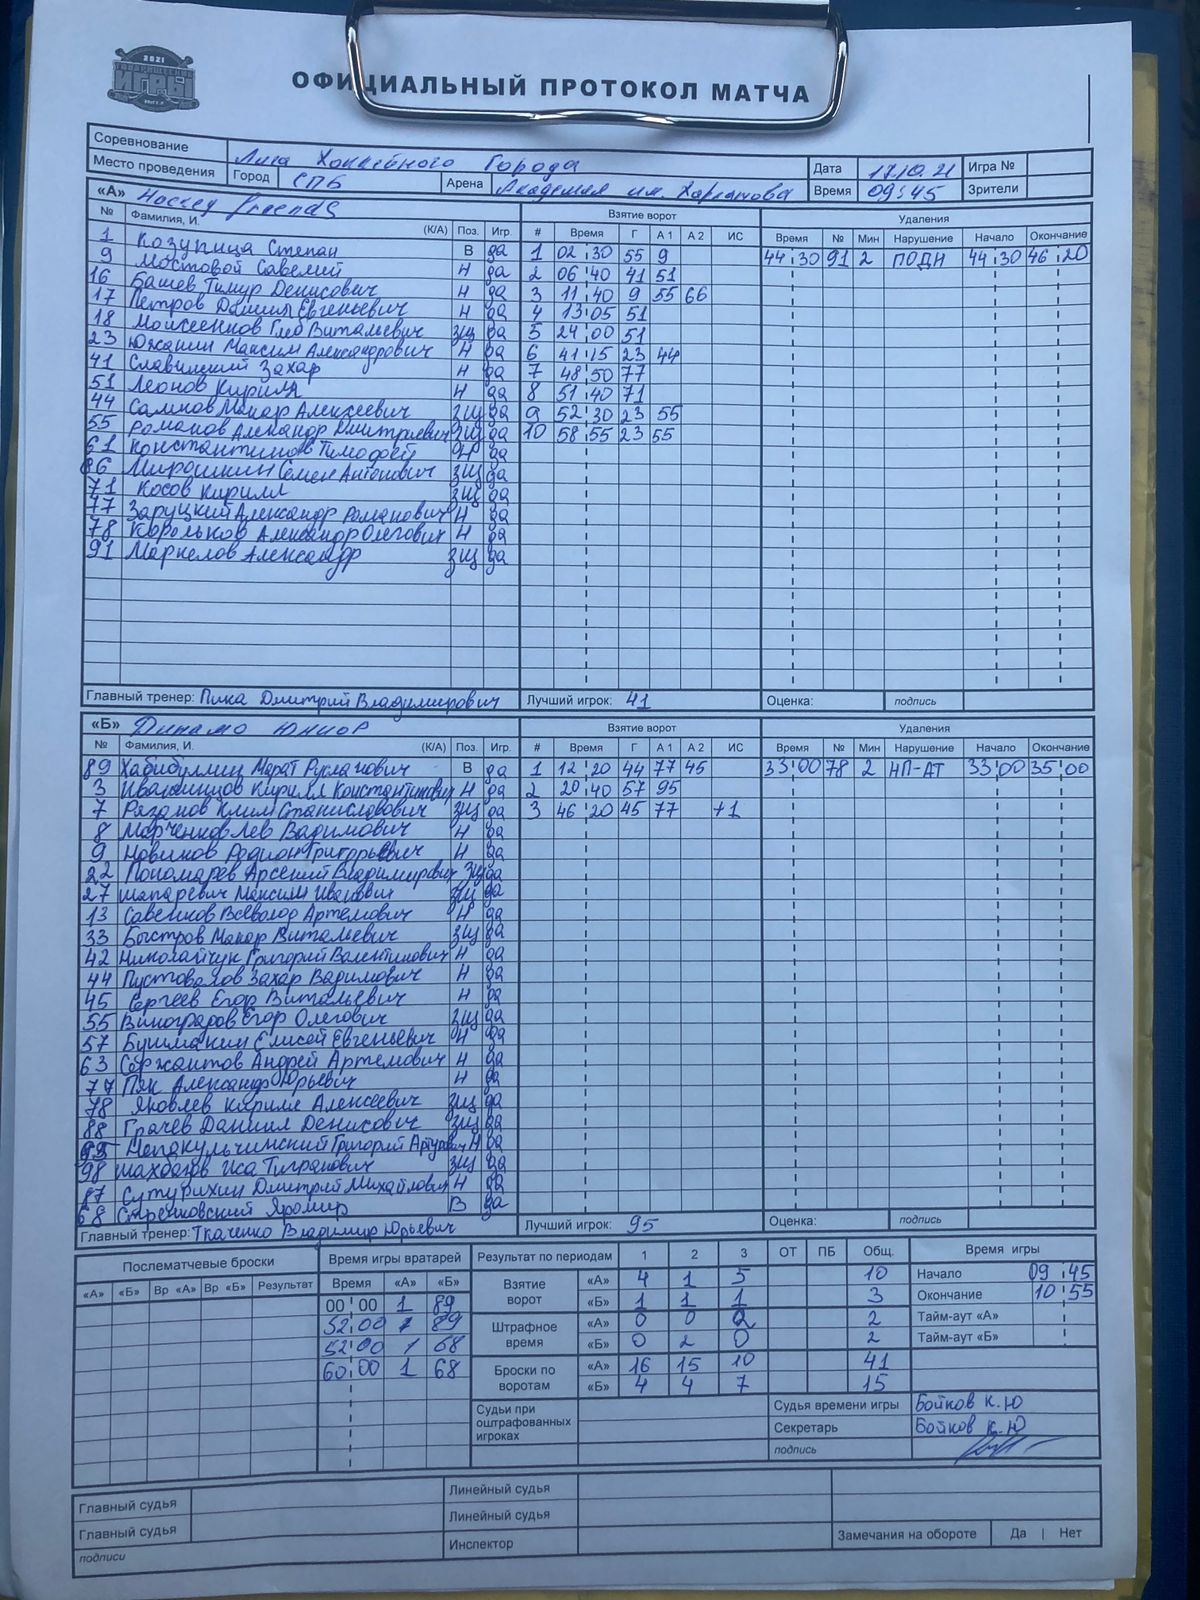 2021
ТОВАРИЩЕСКИЕ
ИГРЫ
ОФИЦИАЛЬНЫЙ ПРОТОКОЛ МАТЧА
Соревнование Лига Хоккейного Города Дата 17.10.21 Игра №
Место проведения Город СПБ Арена Академия им. Харламова Время 09:45 Зрители
«А» Hockey friends Взятие ворот Удаления
№ Фамилия, И. (К/А) Поз. Игр. # Время Г А1 А2 ИС Время № Мин Нарушение Начало Окончание
1 Козупица Степан В да 1 02:30 55 9 44:30 91 2 ПОДН 44:30 46:20
9 Мостовой Савелий Н да 2 06:40 41 51
16 Башев Тимур Денисович Н да 3 11:40 9 55 66
17 Петров Даниил Евгеньевич Н да 4 13:05 51
18 Моисеенков Глеб Витальевич ЗЩ да 5 24:00 51
23 Южанин Максим Александрович Н да 6 41:15 23 44
41 Славинский Захар Н да 7 48:50 77
51 Леонов Кирилл Н да 8 51:40 71
44 Салихов Макар Алексеевич ЗЩ да 9 52:30 23 55
55 Романов Александр Дмитриевич ЗЩ да 10 58:55 23 55
61 Константинов Тимофей Н да
66 Мирошкин Семен Антонович ЗЩ да
71 Косов Кирилл ЗЩ да
77 Заруцкий Александр Романович Н да
78 Корольков Александр Олегович Н да
91 Маркелов Александр ЗЩ да
Главный тренер: Пика Дмитрий Владимирович Лучший игрок: 41 Оценка: подпись
«Б» Динамо Юниор Взятие ворот Удаления
№ Фамилия, И. (К/А) Поз. Игр. # Время Г А1 А2 ИС Время № Мин Нарушение Начало Окончание
89 Хабибуллин Марат Русланович В да 1 12:20 44 77 45 33:00 78 2 НП-АТ 33:00 35:00
3 Иванинцов Кирилл Константинович Н да 2 20:40 57 95
7 Рязанов Клим Станиславович ЗЩ да 3 46:20 45 77 +1
8 Марченков Лев Вадимович Н да
9 Новиков Родион Григорьевич Н да
22 Пономарев Арсений Владимирович ЗЩ да
27 Шапаревич Максим Иванович ЗЩ да
13 Савенков Всеволод Артемович Н да
33 Быстров Макар Витальевич ЗЩ да
42 Николайчук Григорий Валентинович Н да
44 Пустовалов Захар Вадимович Н да
45 Сергеев Егор Витальевич Н да
55 Виноградов Егор Олегович ЗЩ да
57 Бушманин Елисей Евгеньевич Н да
63 Сержантов Андрей Артемович Н да
77 Пак Александр Юрьевич Н да
78 Яковлев Кирилл Алексеевич ЗЩ да
88 Грачев Даниил Денисович ЗЩ да
95 Мепакульчинский Григорий Артурович Н да
98 Шахбазов Иса Тигранович ЗЩ да
87 Сутурихин Дмитрий Михайлович Н да
68 Стречковский Яромир В да
Главный тренер: Ткаченко Владимир Юрьевич Лучший игрок: 95 Оценка: подпись
Послематчевые броски Время игры вратарей Результат по периодам 1 2 3 ОТ ПБ Общ. Время игры
«А» «Б» Вр «А» Вр «Б» Результат Время «А» «Б»
00:00 1 89
52:00 1 89
52:00 1 68
60:00 1 68
Взятие ворот «А» 4 1 5 10
«Б» 1 1 1 3
Штрафное время «А» 0 0 2 2
«Б» 0 2 0 2
Броски по воротам «А» 16 15 10 41
«Б» 4 4 7 15
Начало 09:45
Окончание 10:55
Тайм-аут «А»
Тайм-аут «Б»
Судьи при оштрафованных игроках
Судья времени игры Бойков К.Ю
Секретарь Бойков К.Ю
подпись
Главный судья Линейный судья
Главный судья Линейный судья
подписи Инспектор Замечания на обороте Да | Нет